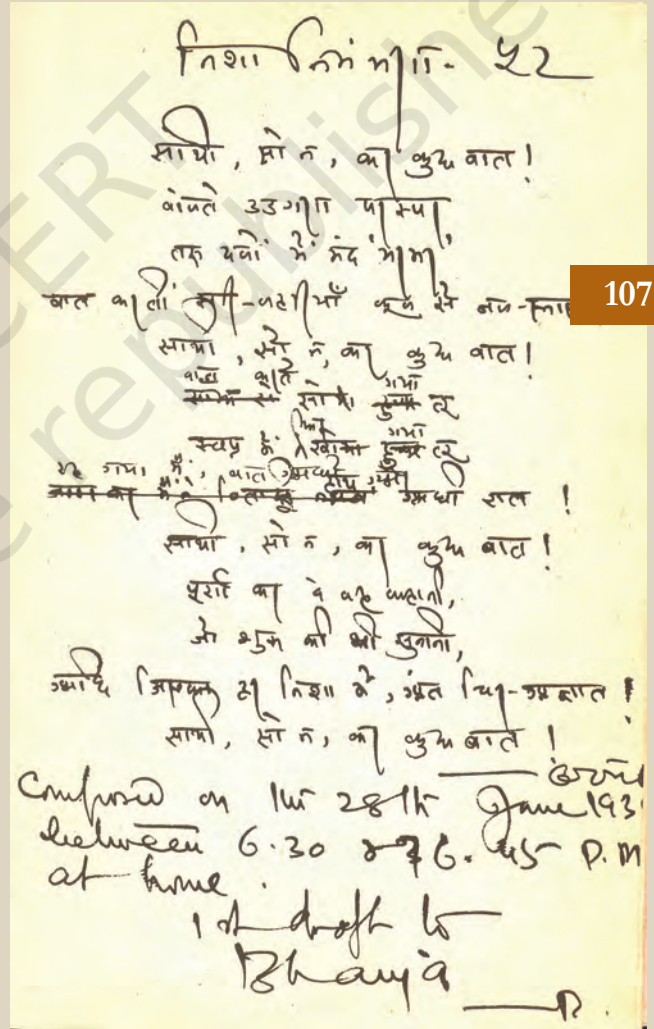 निशा निमंत्रण - ५२
साथी, सो न, कर कुछ बात!
बोलते उडुगण परस्पर,
तरु दलों में मंद मरमर,
बात करतीं सरि-लहरियाँ कूल से जल-स्ना
107
साथी, सो न, कर कुछ बात!
बात करते गया
सो तू
फिर गया
स्वप्न में खो तू
रह गया मैं, बात आधी
आधी रात!
साथी, सो न, कर कुछ बात!
पूर्ण कर दे वह कहानी,
जो शुरू की थी सुनानी,
आदि जिसका हर निशा में, अंत चिर-अज्ञात!
साथी, सो न, कर कुछ बात!
Composed on the 28th June 193
between 6.30 and 6.45 P.M
at home.
1st draft to
CERT
e republishe